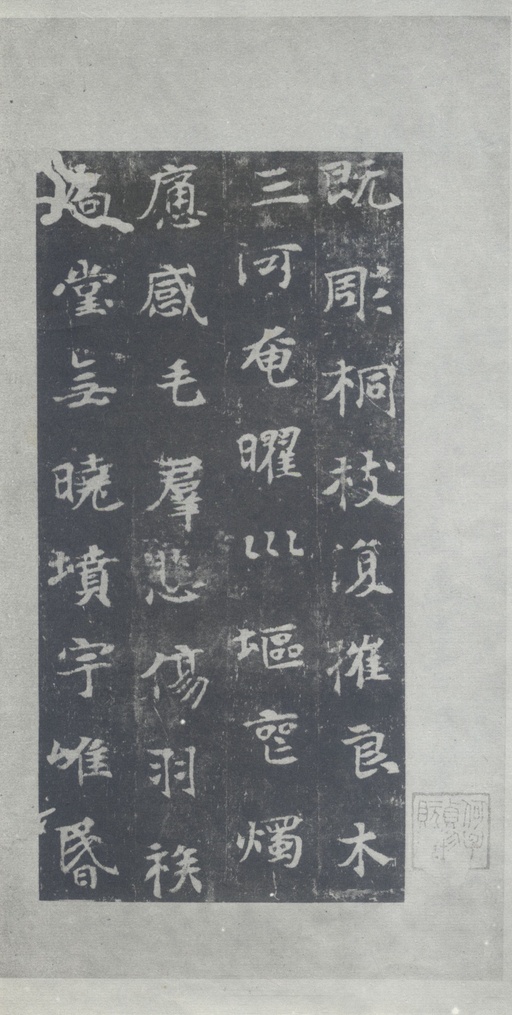 既彫桐枝復摧良木
三河奄曜巛塸喪燭
應感毛羣悲傷羽族
扃堂無曉墳宇唯昏